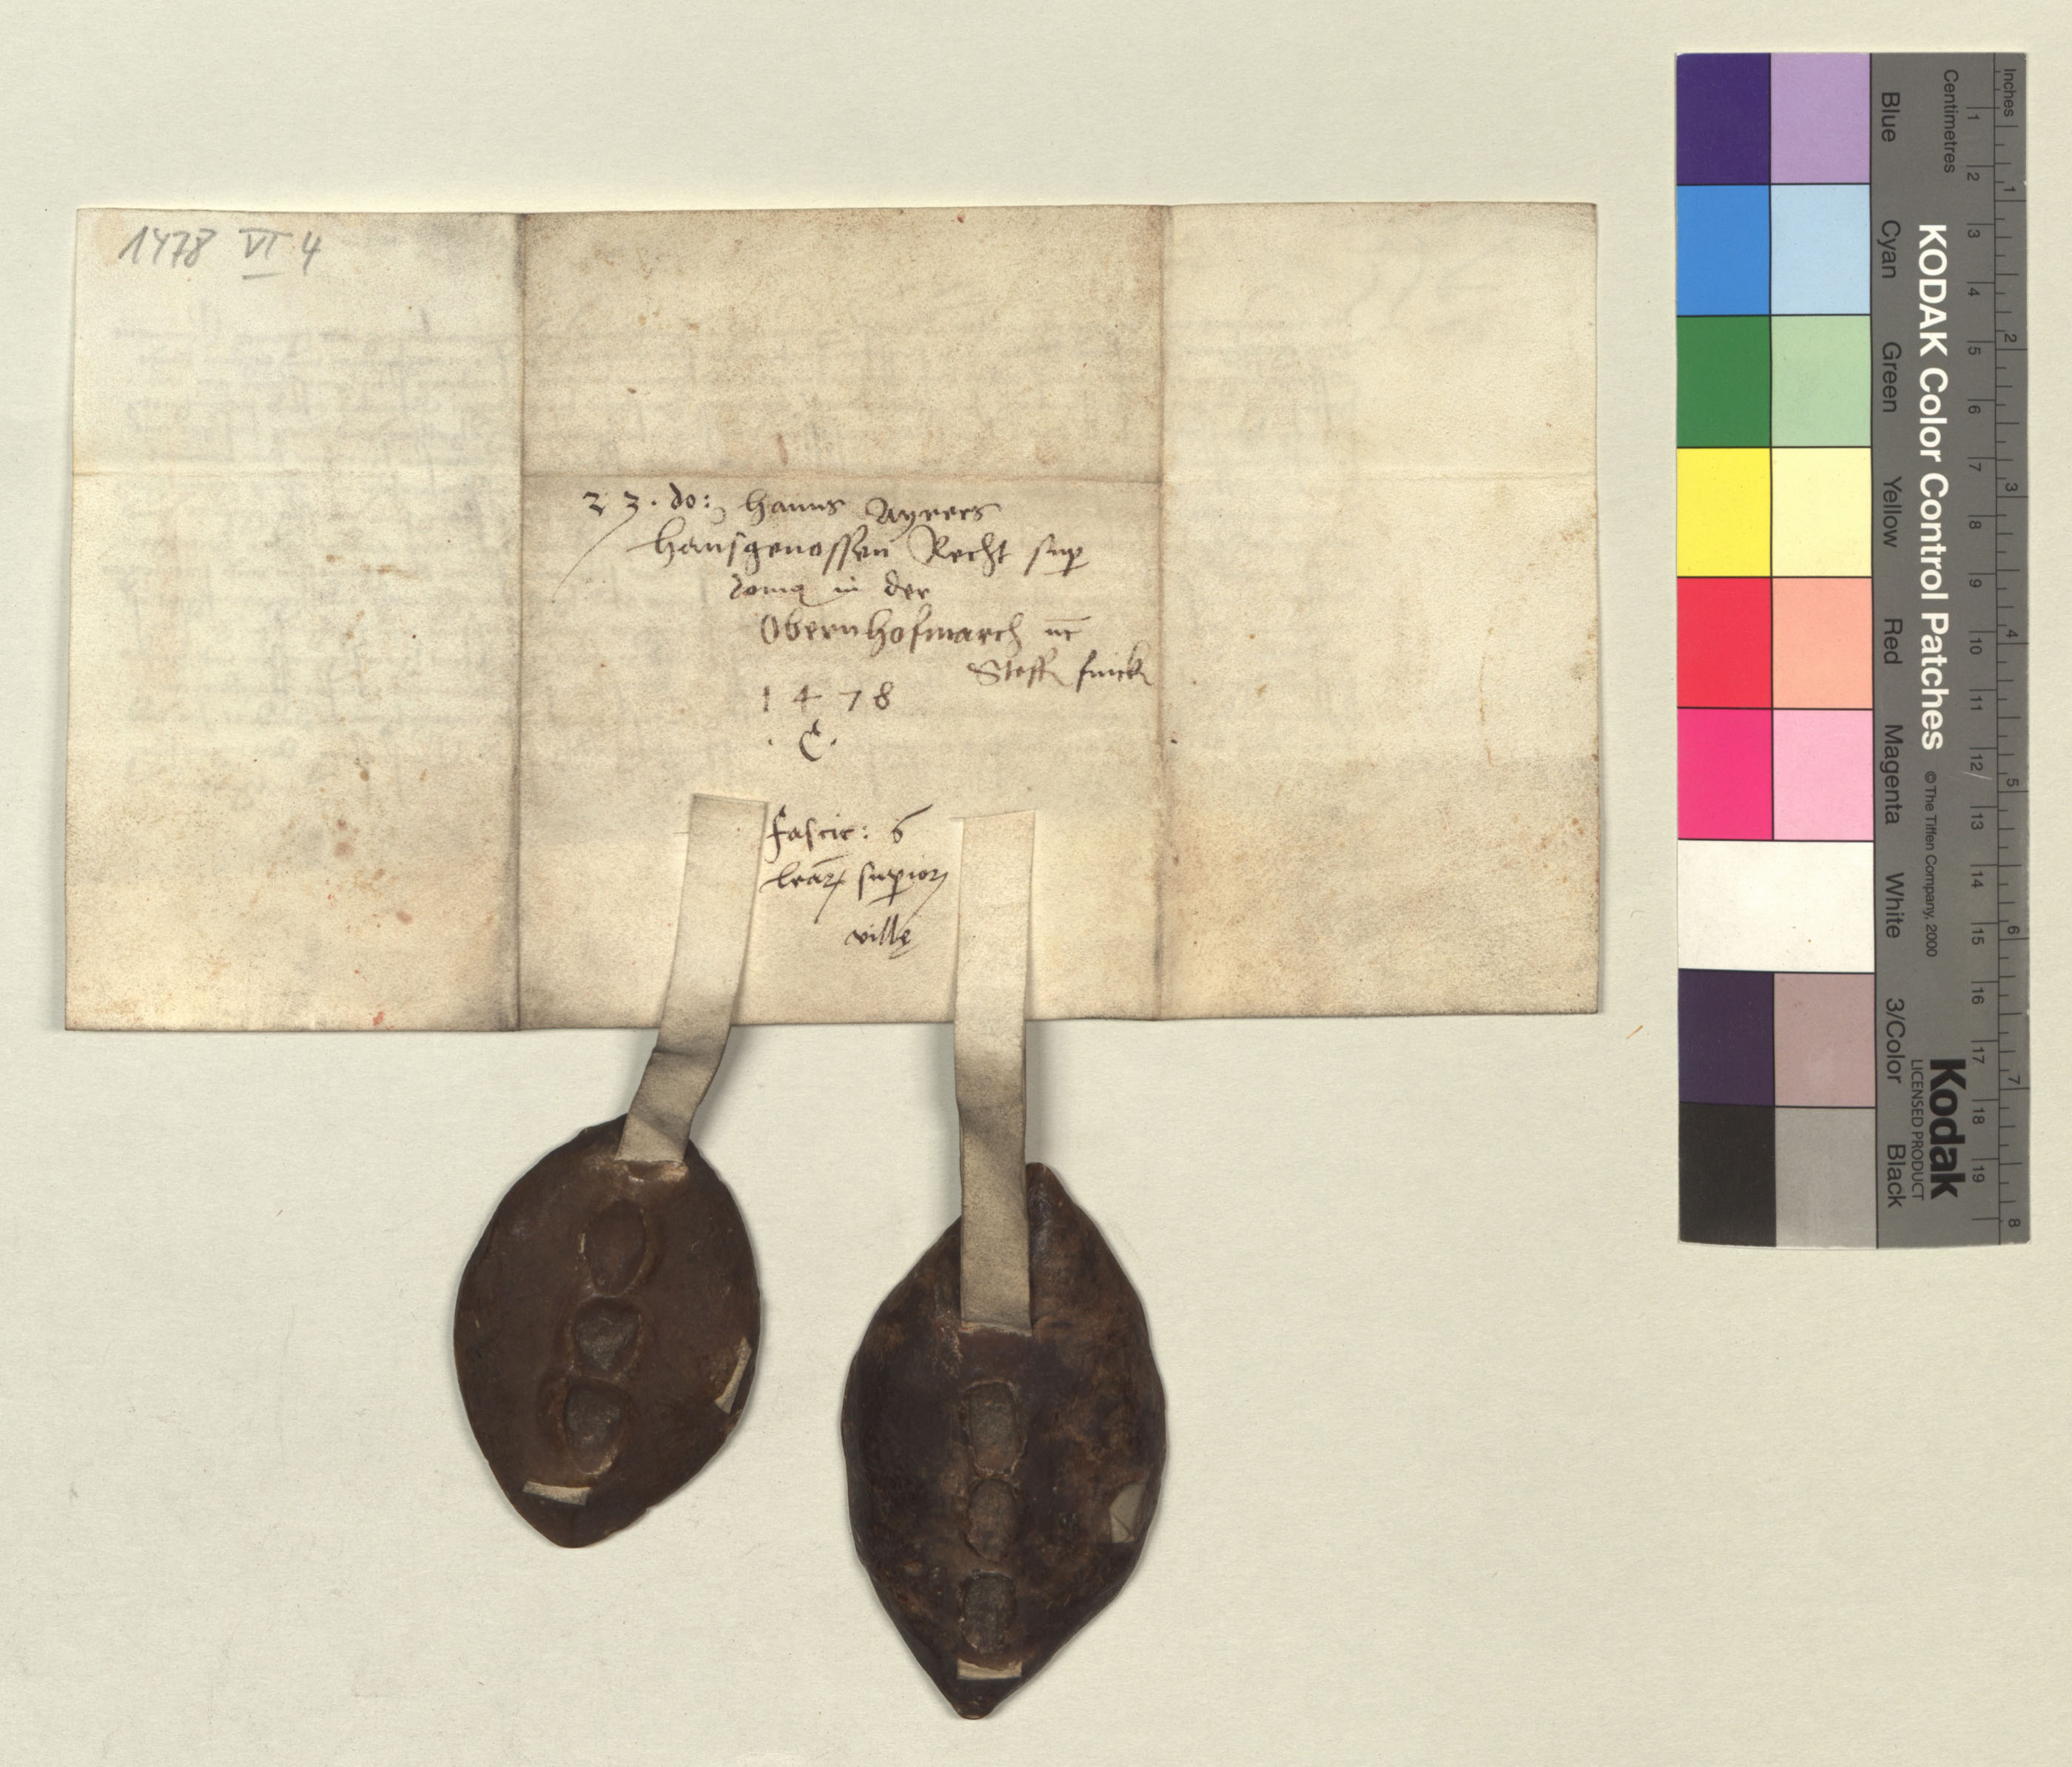 1478 VI 4
23. do: Hanns Ayrers
Hausgenossen Recht sup
domo in der
Obernhofmarch nc
Steff finck
1478
. C .
fascic: 6
lrarum superior
villę
Inches
Centimetres
1 2 3 4 5 6 7 8 9 10 11 12 13 14 15 16 17 18 19
1 2 3 4 5 6 7 8
KODAK Color Control Patches © The Tiffen Company, 2000
Kodak
LICENSED PRODUCT
Blue Cyan Green Yellow Red Magenta White 3/Color Black